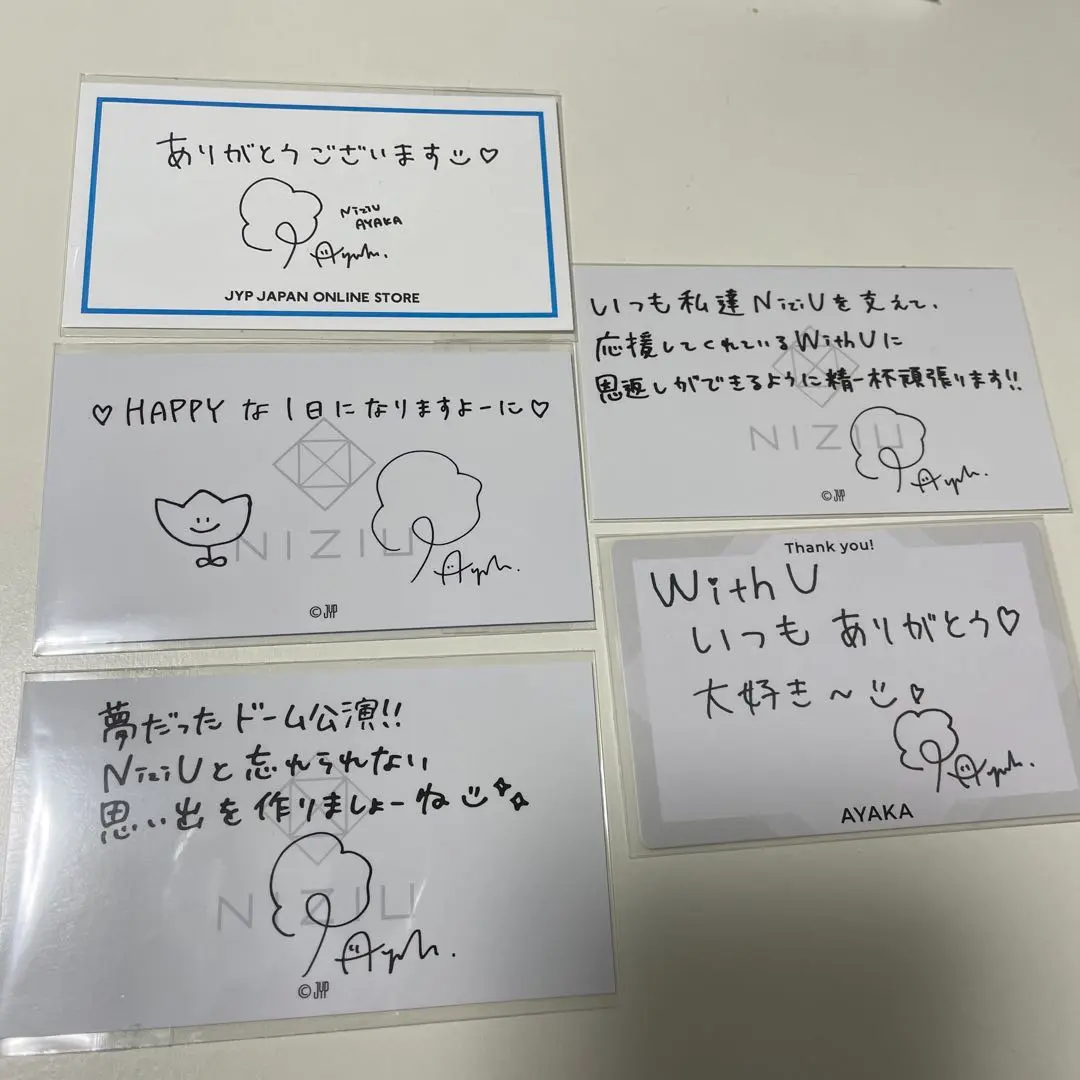 ありがとうございます
NiziU
AYAKA
Ayaka.
JYP JAPAN ONLINE STORE
♡HAPPYな1日になりますよーに♡
NIZIU
Ayaka.
©JYP
夢だったドーム公演!!
NiziUと忘れられない
思い出を作りましょーね
NIZIU
Ayaka.
©JYP
いつも私達NiziUを支えて、
応援してくれているWithUに
恩返しができるように精一杯頑張ります!!
NIZIU
Ayaka.
©JYP
Thank you!
WithU
いつもありがとう♡
大好き〜
Ayaka.
AYAKA